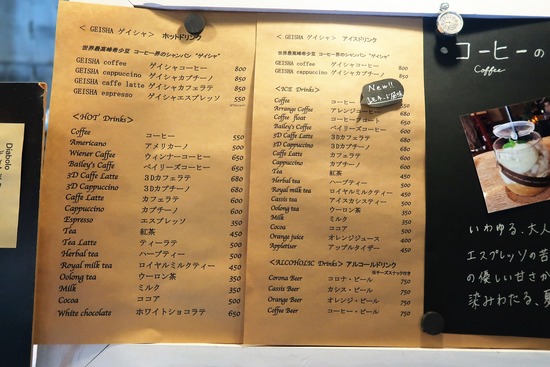 < GEISHA ゲイシャ > ホットドリンク
世界最高峰希少豆 コーヒー界のシャンパン "ゲイシャ"
GEISHA coffee ゲイシャコーヒー 800
GEISHA cappuccino ゲイシャカプチーノ 850
GEISHA caffe latte ゲイシャカフェラテ 850
GEISHA espresso ゲイシャエスプレッソ 550
<HOT Drinks>
Coffee コーヒー 550
Americano アメリカーノ 500
Wiener Coffee ウィンナーコーヒー 650
Bailey's Coffee ベイリーズコーヒー 680
3D Caffe Latte 3Dカフェラテ 680
3D Cappuccino 3Dカプチーノ 680
Caffe Latte カフェラテ 650
Cappuccino カプチーノ 650
Espresso エスプレッソ 350
Tea 紅茶 450
Tea Latte ティーラテ 500
Herbal tea ハーブティー 500
Royal milk tea ロイヤルミルクティー 450
Oolong tea ウーロン茶 350
Milk ミルク 350
Cocoa ココア 500
White chocolate ホワイトショコラテ 650
< GEISHA ゲイシャ > アイスドリンク
世界最高峰希少豆 コーヒー界のシャンパン "ゲイシャ"
GEISHA coffee ゲイシャコーヒー 800
GEISHA cappuccino ゲイシャカプチーノ 850
New!!
<ICE Drinks>
Coffee コーヒー
Arrange Coffee アレンジコーヒー 680
Coffee float 680
Bailey's Coffee ベイリーズコーヒー 680
3D Caffe Latte 3Dカフェラテ 680
3D Cappuccino 3Dカプチーノ 680
Caffe Latte カフェラテ 650
Cappuccino カプチーノ 650
Tea 紅茶 450
Herbal tea ハーブティー 500
Royal milk tea ロイヤルミルクティー 450
Cassis tea アイスカシスティー
Oolong tea ウーロン茶 350
Milk ミルク 350
Cocoa ココア 500
Orange juice オレンジジュース 400
Appletiser アップルタイザー 450
<ALCOHOLIC Drinks> アルコールドリンク
Corona Beer コロナ・ビール 750
Cassis Beer カシス・ビール 750
Orange Beer オレンジ・ビール 750
Coffee Beer コーヒー・ビール 750
コーヒーの
Coffee
いわゆる、大人
エスプレッソの苦
の優しい甘さが
染みわたる、
Diabolo